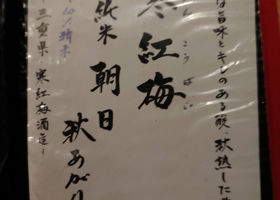 は旨味とキレのある酸、秋熟した
寒紅梅
こうばい
純米 朝日
秋あがり
三重県〜寒紅梅酒造〜